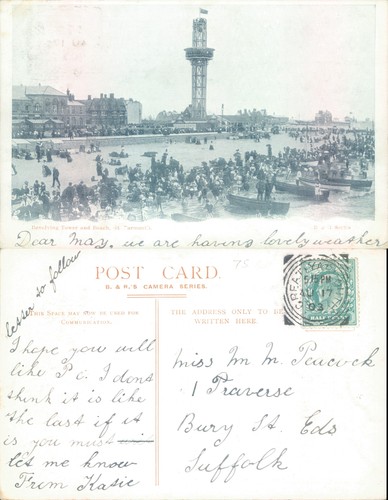 Revolving Tower and Beach, Gt. Yarmouth.
Dear May, we are having lovely weather
POST CARD.
B. & R's CAMERA SERIES.
THIS SPACE MAY NOW BE USED FOR
COMMUNICATION.
THE ADDRESS ONLY TO BE
WRITTEN HERE.
75
GREAT YARMOUTH
5.15 PM
17
HALF
so follow
I hope you will
like P.C. I dont
think it is like
the last if it
is you must
let me know
From Kasie
Miss M M. Peacock
1 Traverse
Bury St. Eds
Suffolk